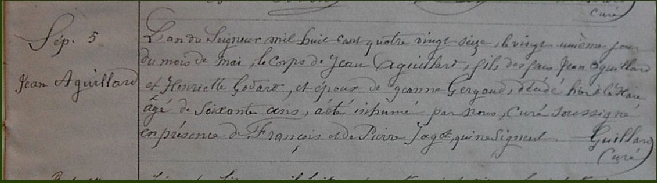 Curé
Sép. 5
Jean Aguillard
L'an du Seigneur mil huit cent quatre vingt seize, le vingt unième jour
du mois de mai, le corps d' Jean Aguillard, fils de feu Jean Aguillard
et Henriette Godart, et époux de Jeanne Gergaud, décédé hier
âgé de soixante ans, a été inhumé par nous, curé soussigné
en présence de François et de Pierre qui ne signent Guillard
Curé